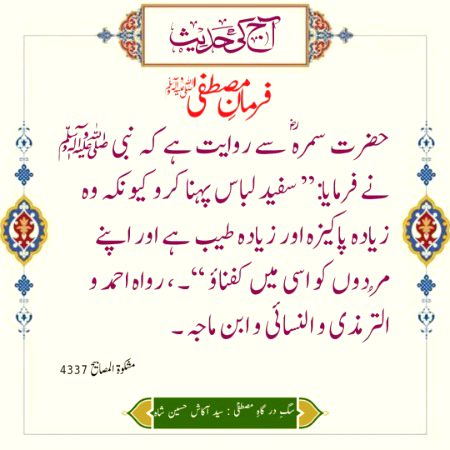 آج کی حدیث
فرمانِ مصطفی ﷺ
حضرت سمرہؓ سے روایت ہے کہ نبی ﷺ
نے فرمایا:” سفید لباس پہنا کرو کیونکہ وہ
زیادہ پاکیزہ اور زیادہ طیب ہے اور اپنے
مردوں کو اسی میں کفناؤ “۔ ، رواہ احمد و
الترمذی و النسائی و ابن ماجہ ۔
مشکوۃ المصابیح 4337
سگِ درگاہِ مصطفی : سید آکاش حسین شاہ